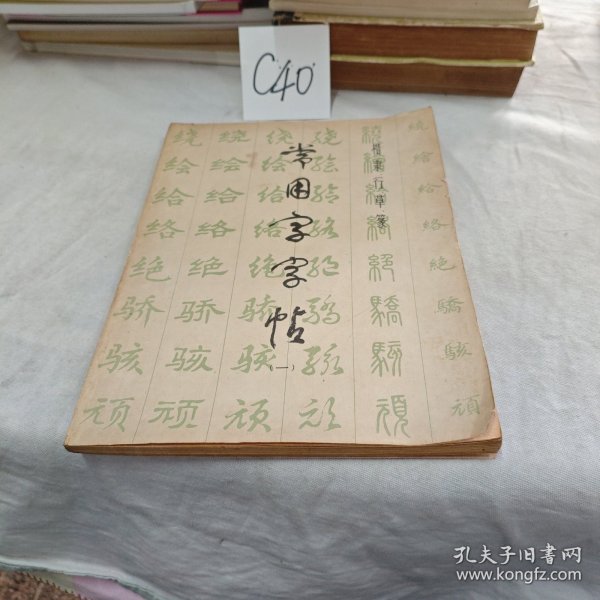 C40
常用字字帖
(一)
楷隶行草篆
绕 绕 绕 绕 繞
绘 绘 绘 绘 繪 繪
给 给 给 给 給 給
络 络 络 络 絡 絡
绝 绝 绝 绝 絕 絕
骄 骄 骄 骄 驕 驕
骇 骇 骇 骇 駭 駭
顽 顽 顽 顽 頑 頑
孔夫子旧书网
www.kongfz.com